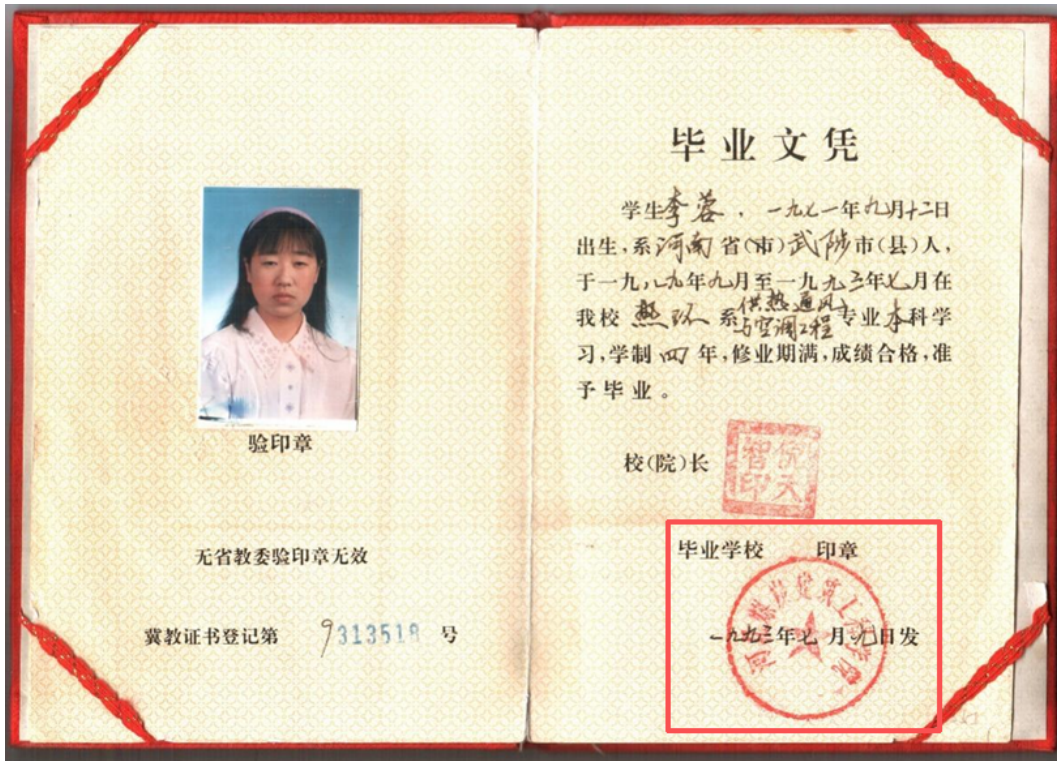 验印章
无省教委验印章无效
冀教证书登记第 9313518 号
毕业文凭
学生李蓉，一九七一年九月十二日
出生，系河南省(市)武陟市(县)人，
于一九八九年九月至一九九三年七月在
我校 热环 系供热通风与空调工程专业本科学
习，学制四年，修业期满，成绩合格，准
予毕业。
校(院)长
智印
天
毕业学校 印章
河北 建筑工程学院
一九九三年七月九日发